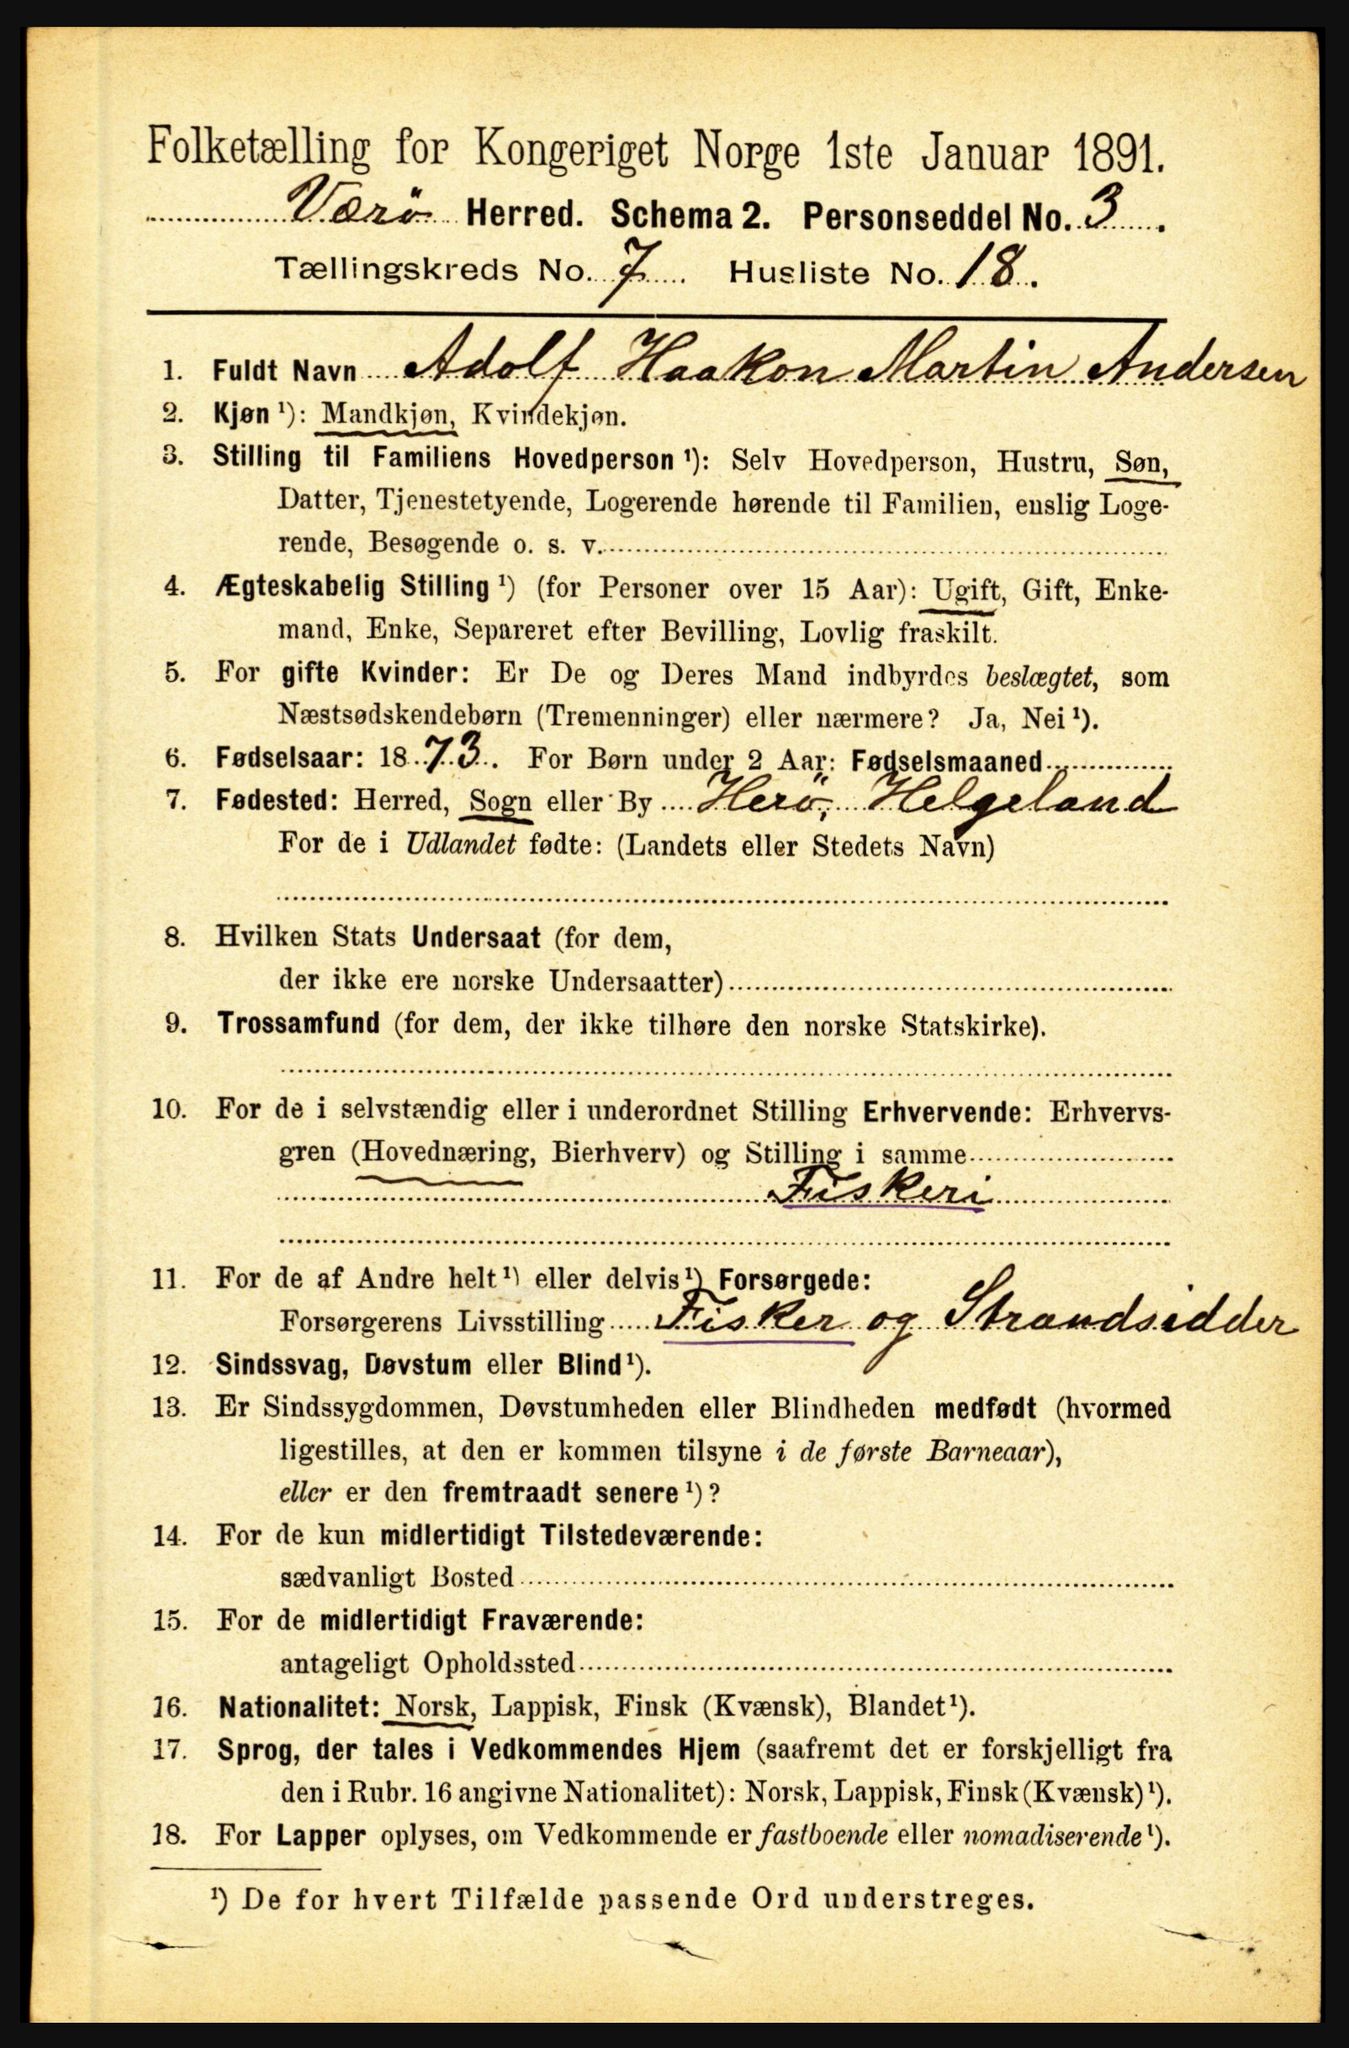 Folketælling for Kongeriget Norge 1ste Januar 1891.
Værö Herred. Schema 2. Personseddel No. 3.
Tællingskreds No. 7. Husliste No. 18.
1. Fuldt Navn Adolf Haakon Martin Andersen
2. Kjøn ¹): Mandkjøn, Kvindekjøn.
3. Stilling til Familiens Hovedperson ¹): Selv Hovedperson, Hustru, Søn,
Datter, Tjenestetyende, Logerende hørende til Familien, enslig Loge-
rende, Besøgende o. s. v.
4. Ægteskabelig Stilling ¹) (for Personer over 15 Aar): Ugift, Gift, Enke-
mand, Enke, Separeret efter Bevilling, Lovlig fraskilt.
5. For gifte Kvinder: Er De og Deres Mand indbyrdes beslægtet, som
Næstsødskendebørn (Tremenninger) eller nærmere? Ja, Nei ¹).
6. Fødselsaar: 1873. For Børn under 2 Aar: Fødselsmaaned
7. Fødested: Herred, Sogn eller By Herö, Helgeland
For de i Udlandet fødte: (Landets eller Stedets Navn)
8. Hvilken Stats Undersaat (for dem,
der ikke ere norske Undersaatter)
9. Trossamfund (for dem, der ikke tilhøre den norske Statskirke).
10. For de i selvstændig eller i underordnet Stilling Erhvervende: Erhvervs-
gren (Hovednæring, Bierhverv) og Stilling i samme
Fiskeri
11. For de af Andre helt ¹) eller delvis ¹) Forsørgede:
Forsørgerens Livsstilling Fisker og Strandsidder
12. Sindssvag, Døvstum eller Blind ¹).
13. Er Sindssygdommen, Døvstumheden eller Blindheden medfødt (hvormed
ligestilles, at den er kommen tilsyne i de første Barneaar),
eller er den fremtraadt senere ¹)?
14. For de kun midlertidigt Tilstedeværende:
sædvanligt Bosted
15. For de midlertidigt Fraværende:
antageligt Opholdssted
16. Nationalitet: Norsk, Lappisk, Finsk (Kvænsk), Blandet ¹).
17. Sprog, der tales i Vedkommendes Hjem (saafremt det er forskjelligt fra
den i Rubr. 16 angivne Nationalitet): Norsk, Lappisk, Finsk (Kvænsk) ¹).
18. For Lapper oplyses, om Vedkommende er fastboende eller nomadiserende ¹).
¹) De for hvert Tilfælde passende Ord understreges.